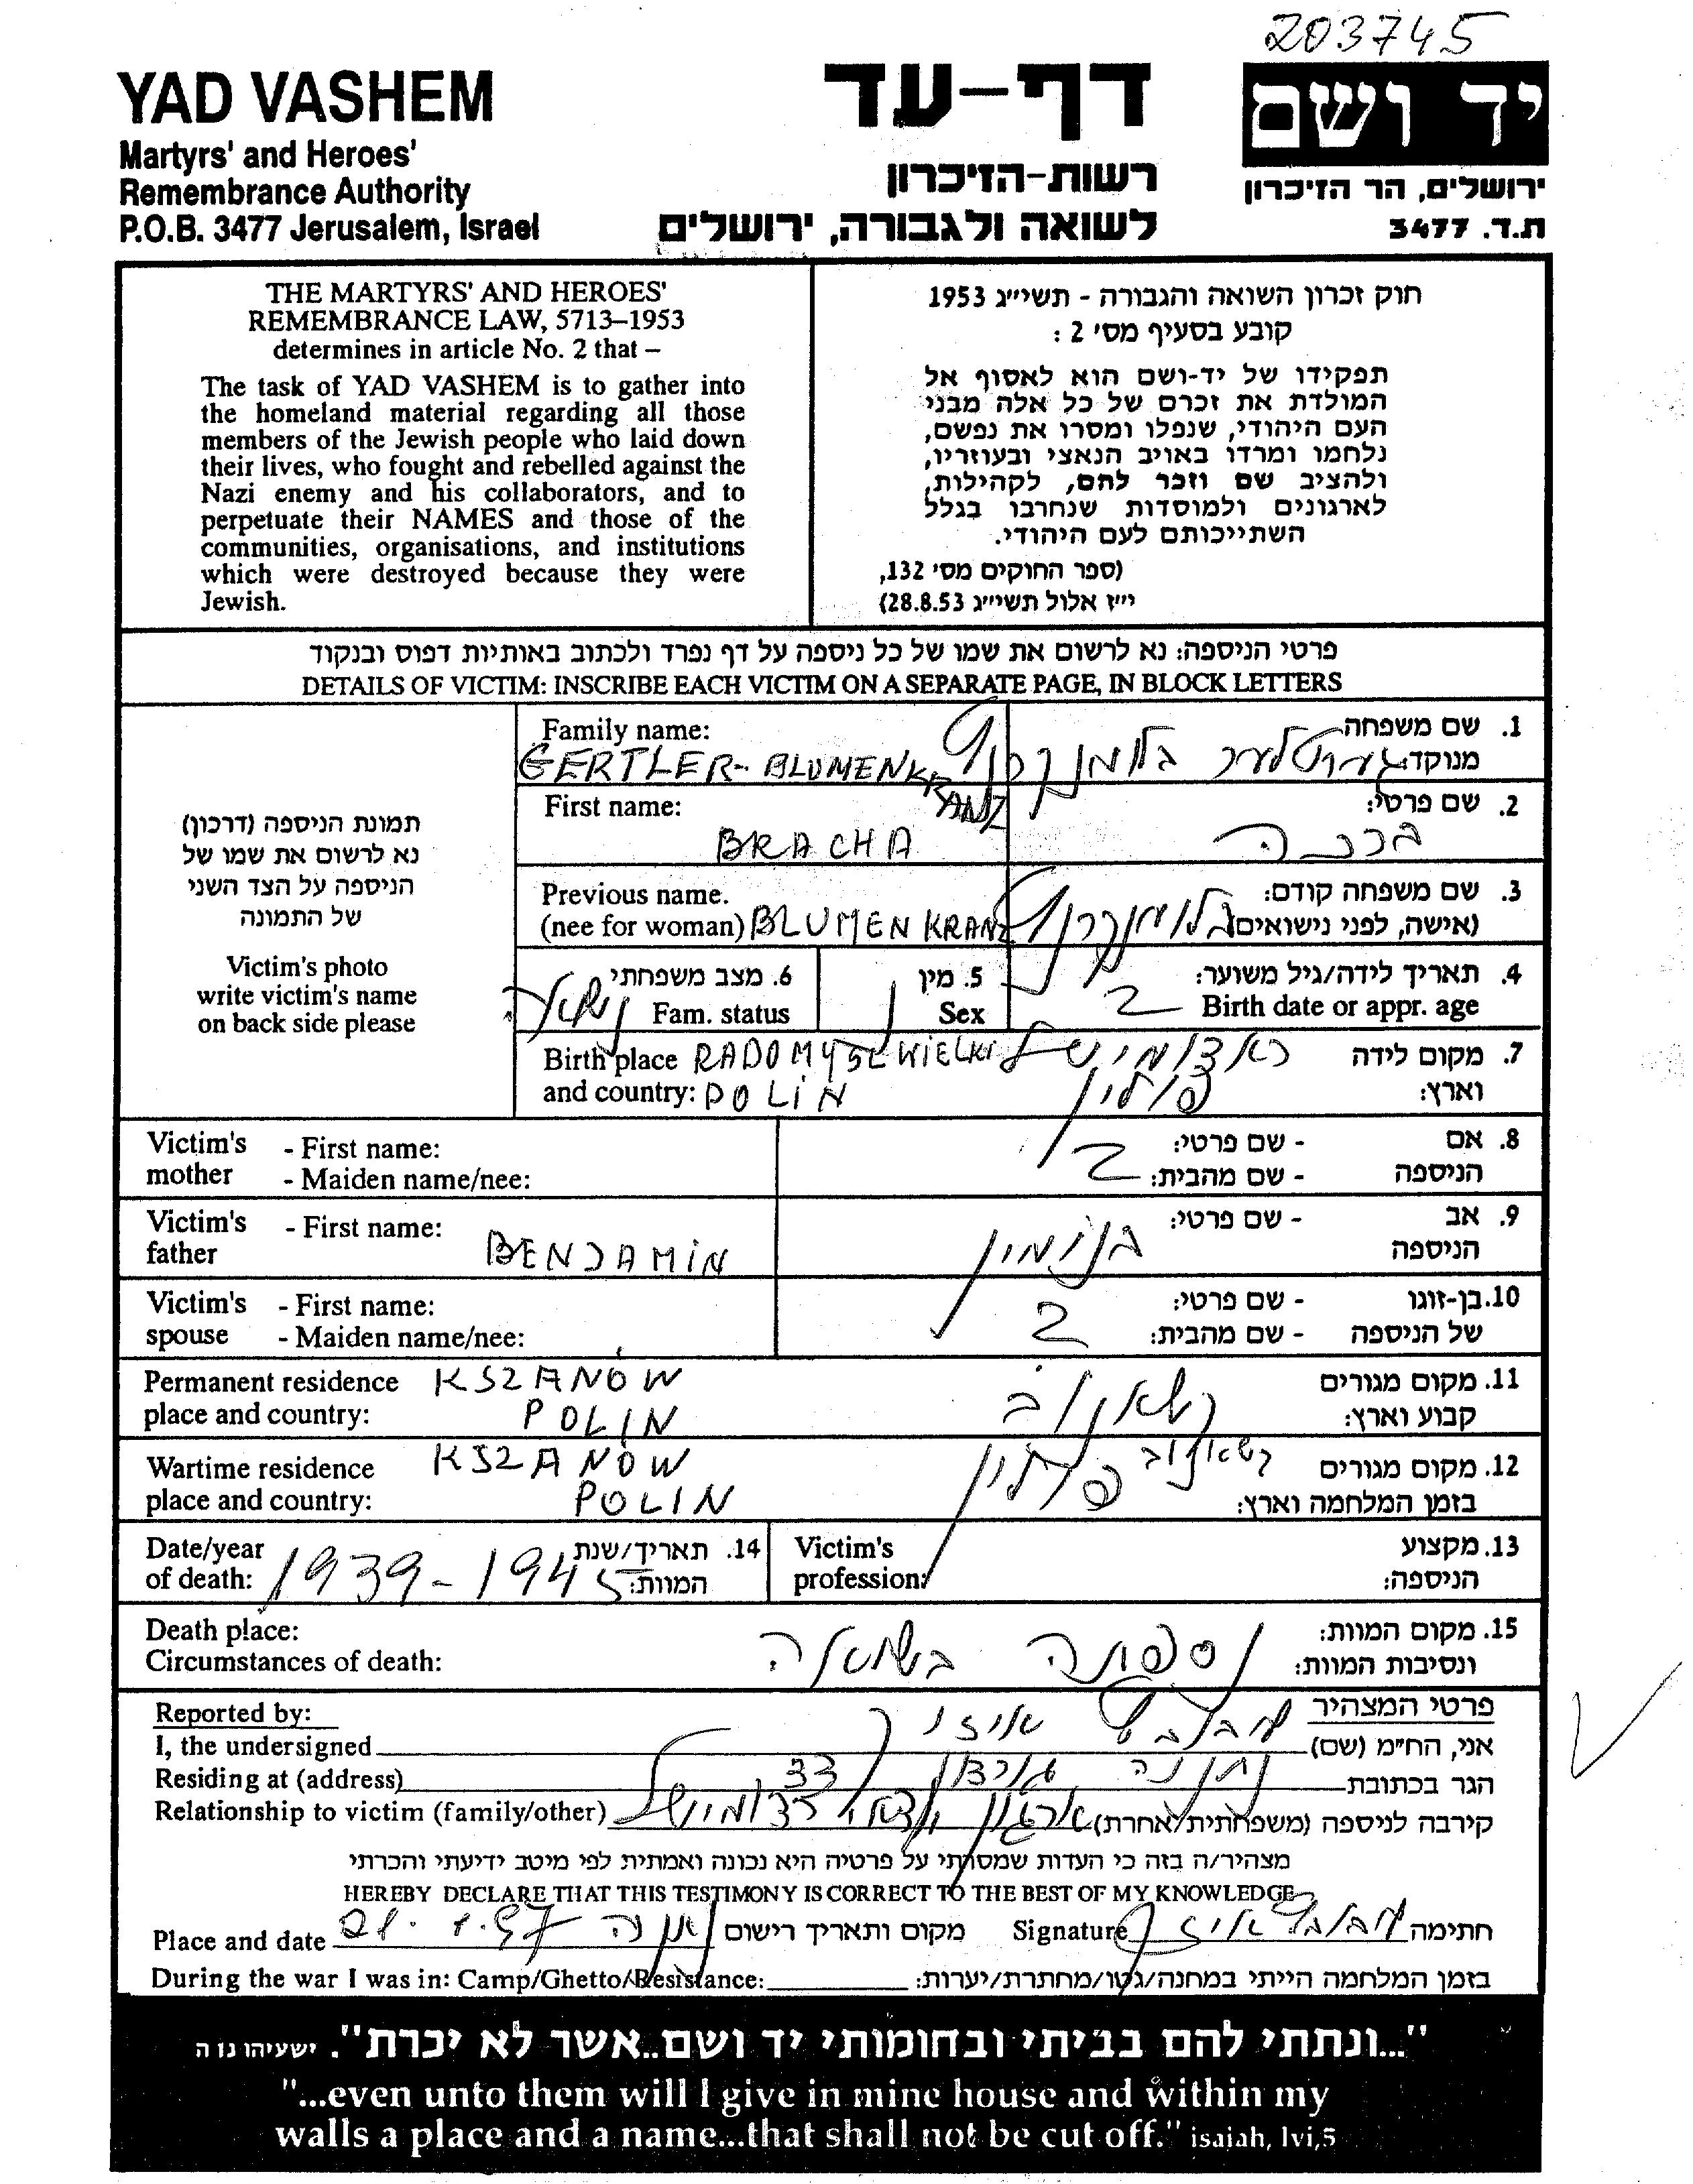 203745
YAD VASHEM
Martyrs' and Heroes'
Remembrance Authority
P.O.B. 3477 Jerusalem, Israel
דף-עד
רשות-הזיכרון
לשואה ולגבורה, ירושלים
יד ושם
ירושלים, הר הזיכרון
ת.ד. 3477
THE MARTYRS' AND HEROES'
REMEMBRANCE LAW, 5713–1953
determines in article No. 2 that –
The task of YAD VASHEM is to gather into
the homeland material regarding all those
members of the Jewish people who laid down
their lives, who fought and rebelled against the
Nazi enemy and his collaborators, and to
perpetuate their NAMES and those of the
communities, organisations, and institutions
which were destroyed because they were
Jewish.
חוק זכרון השואה והגבורה - תשי״ג 1953
קובע בסעיף מס׳ 2 :
תפקידו של יד-ושם הוא לאסוף אל
המולדת את זכרם של כל אלה מבני
העם היהודי, שנפלו ומסרו את נפשם,
נלחמו ומרדו באויב הנאצי ובעוזריו,
ולהציב שם וזכר להם, לקהילות,
לארגונים ולמוסדות שנחרבו בגלל
השתייכותם לעם היהודי.
(ספר החוקים מס׳ 132,
י״ז אלול תשי״ג 28.8.53)
פרטי הניספה: נא לרשום את שמו של כל ניספה על דף נפרד ולכתוב באותיות דפוס ובנקוד
DETAILS OF VICTIM: INSCRIBE EACH VICTIM ON A SEPARATE PAGE, IN BLOCK LETTERS
תמונת הניספה (דרכון)
נא לרשום את שמו של
הניספה על הצד השני
של התמונה
Victim's photo
write victim's name
on back side please
Family name:
GERTLER- BLUMENKRANZ
1. שם משפחה
מנוקד: גערטלער בלומנקרנץ
First name:
BRACHA
2. שם פרטי:
ברכה
Previous name.
(nee for woman) BLUMENKRANZ
3. שם משפחה קודם:
(אישה, לפני נישואים) בלומנקרנץ
4. תאריך לידה/גיל משוער:
Birth date or appr. age ?
5. מין
Sex נ
6. מצב משפחתי
Fam. status נשואה
Birth place RADOMYSL WIELKI
and country: POLIN
7. מקום לידה ראדומישל
וארץ: פולין
Victim's mother - First name:
- Maiden name/nee:
8. אם הניספה - שם פרטי:
- שם מהבית: ?
Victim's father - First name:
BENJAMIN
9. אב הניספה - שם פרטי:
בנימין
Victim's spouse - First name:
- Maiden name/nee:
10. בן-זוגו של הניספה - שם פרטי:
- שם מהבית: ?
Permanent residence KSZANÓW
place and country: POLIN
11. מקום מגורים
קבוע וארץ: קשאנוב
Wartime residence KSZANÓW
place and country: POLIN
12. מקום מגורים קשאנוב
בזמן המלחמה וארץ: פולין
Date/year
of death: 1939-1945
14. תאריך/שנת
המוות:
Victim's
profession:
13. מקצוע
הניספה:
Death place:
Circumstances of death:
15. מקום המוות:
ונסיבות המוות:
נספתה בשואה.
Reported by:
פרטי המצהיר
I, the undersigned
אני, החי״מ (שם) איזי
Residing at (address)
הגר בכתובת נתניה גורדון 33
Relationship to victim (family/other)
קירבה לניספה (משפחתית/אחרת) ארגון יוצאי רדומישל
מצהיר/ה בזה כי העדות שמסרתי על פרטיה היא נכונה ואמתית לפי מיטב ידיעתי והכרתי
HEREBY DECLARE THAT THIS TESTIMONY IS CORRECT TO THE BEST OF MY KNOWLEDGE
Place and date 21.1.97 נתניה מקום ותאריך רישום
Signature איזי חתימה
During the war I was in: Camp/Ghetto/Resistance:
בזמן המלחמה הייתי במחנה/גטו/מחתרת/יערות:
"...ונתתי להם בביתי ובחומותי יד ושם..אשר לא יכרת". ישעיהו נו ה
"...even unto them will I give in mine house and within my
walls a place and a name...that shall not be cut off." isaiah, lvi,5